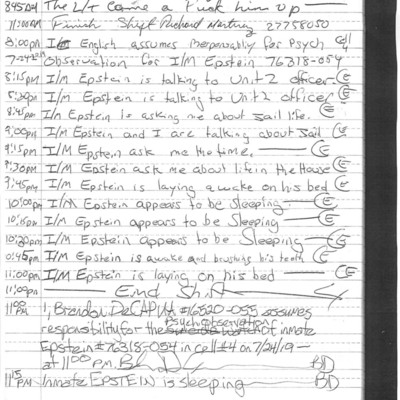 8:45am The L/T came a pick him up
11:00AM Finish Shift Richard 27758050
8:00pm I/m English assumes responsably for Psych Cell 4
7-24-2019 Observation for I/M Epstein 76318-054
8:15pm I/m Epstein is talking to Unit 2 officer CE
8:30pm I/m Epstein is talking to Unit 2 officer CE
8:45pm I/m Epstein is asking me about jail life. CE
9:00pm I/M Epstein and I are talking about Jail CE
9:15pm I/M Epstein ask me the time. CE
9:30pm I/M Epstein ask me about life in the House CE
9:45pm I/M Epstein is laying awake on his bed CE
10:00pm I/M Epstein appears to be sleeping CE
10:15pm I/M Epstein appears to be Sleeping CE
10:30pm I/M Epstein appears to be Sleeping CE
10:45pm I/M Epstein is awake and brushing his teeth CE
11:00pm I/M Epstein is laying on his bed CE
11:00pm End Shift
11:00 PM I, Brendon DeCAPUA #16520-055 assumes
Psych Observation
responsibility for the of inmate
Epstein #76318-054 in cell #4 on 7/24/19—
at 11:00 P.M. BD
11:15 PM Inmate EPSTEIN is sleeping BD